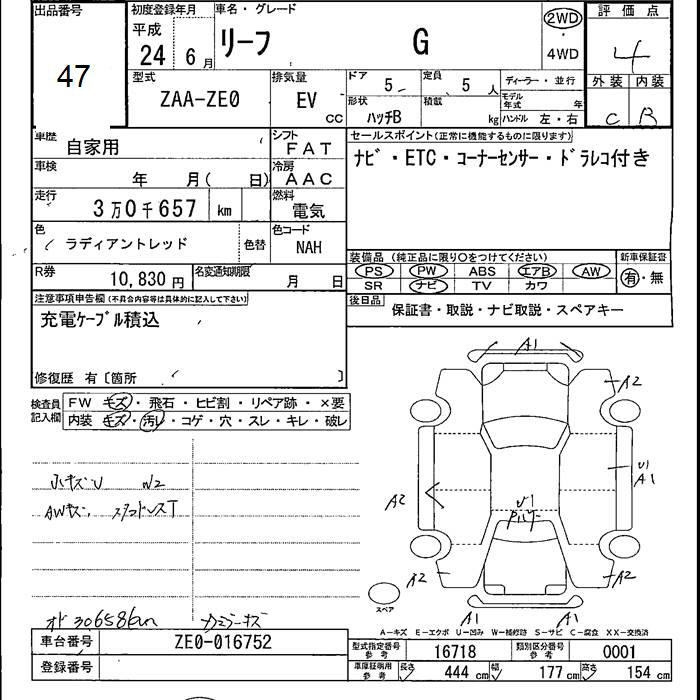 出品番号 初度登録年月 車名・グレード 2WD 評価点
47 平成 24 6月 リーフ G ・ 4WD 4
型式 排気量 ドア 5 定員 5人 ディーラー・並行 外装 内装
ZAA-ZE0 EV CC 形状 ハッチB 積載 kg モデル年式 年 ハンドル 左・右 C B
車歴 自家用 シフト FAT セールスポイント(正常に機能するものに限ります)
車検 年 月( 日) 冷房 AAC ナビ・ETC・コーナーセンサー・ドラレコ付き
走行 3万0千657 km 燃料 電気
色 ラディアントレッド 色替 色コード NAH 装備品(純正品に限り○をつけてください) 新車保証書
PS PW ABS エアB AW 有・無
R券 10,830円 名変通知期限 月 日 SR ナビ TV カワ
注意事項申告欄(不具合内容等は具体的に記入して下さい) 後日品 保証書・取説・ナビ取説・スペアキー
充電ケーブル積込
修復歴 有〔箇所 〕
検査員記入欄 FW キズ・飛石・ヒビ割・リペア跡・×要
内装 キズ・汚レ・コゲ・穴・スレ・キレ・破レ
A1
A2
小キズU
AWキズ
U1
A1
A2
U1
A2 A2
スペア
A1 A1
A-キズ E-エクボ U-凹み W-補修跡 S-サビ C-腐食 XX-交換済
オド 30658km
車台番号 ZE0-016752 型式指定番号 参考 16718 類別区分番号 参考 0001
登録番号 車庫証明用 参考 長さ 444cm 幅 177cm 高さ 154cm